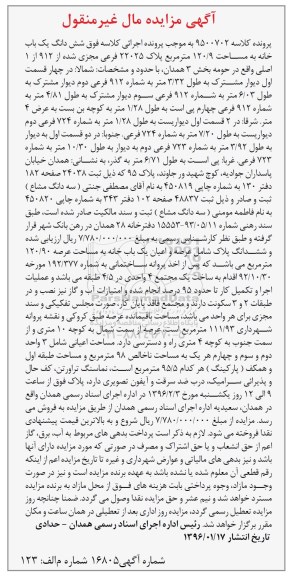 آگهی مزایده مال غیرمنقول
پرونده کلاسه ۹۵۰۰۷۰۲ به موجب پرونده اجرائی کلاسه فوق شش دانگ یک باب
خانه به مساحت ۱۲۰/۹ مترمربع پلاک ۲۲۰۲۵ فرعی مجزی شده از ۹۱۲ از ۱
اصلی واقع در حومه بخش ۳ همدان، با حدود و مشخصات: شمالا: در چهار قسمت
اول دیوار مشترک به طول ۳/۳۲ متر به شماره ۹۱۲ فرعی دوم دیوار مشترک به
طول ۶/۰۳ متر به شماره ۹۱۲ فرعی سوم دیوار مشترک به طول ۴/۸۱ متر به
شماره ۹۱۲ فرعی چهارم پی است به طول ۱/۲۸ متر به کوچه بن بست به عرض ۴
متر. شرقا: در ۲ قسمت اول دیواریست به طول ۱/۲۸ متر به شماره ۷۲۴ فرعی دوم
دیواریست به طول ۷/۲۰ متر به شماره ۷۲۴ فرعی. جنوبا: در دو قسمت اول به دیوار
به طول ۳/۹۲ متر به شماره ۷۲۳ فرعی دوم به دیوار به طول ۱۰/۳۰ متر به شماره
۷۲۳ فرعی. غربا: پی است به طول ۶/۷۱ متر به گذر، به نشانی: همدان خیابان
پاسداران جوادیه، کوچ شهید ور جاوند، پلاک ۹۵ که ذیل ثبت ۲۴۰۳۸ صفحه ۱۸۲
دفتر ۱۳۰ به شماره چاپی ۴۵۰۸۱۹ به نام آقای مصطفی جنتی (سه دانگ مشاع)
ثبت و صادر و ذیل ثبت ۴۸۸۳۷ صفحه ۱۰۲ دفتر ۳۴۳ به شماره چاپی ۴۵۰۸۲۰
به نام فاطمه مومنی (سه دانگ مشاع) ثبت و سند مالکیت صادر شده است، طبق
سند رهنی شماره ۱۵۵۵۳-۹۳/۰۵/۱۱ دفترخانه ۲۸ همدان در رهن بانک شهر قرار
گرفته و طبق نظر کارشناس رسمی به مبلغ ۷/۷۸۰/۰۰۰/۰۰۰ ریال ارزیابی شده
و ششدانگ پلاک شامل عرصه و اعیان یک باب خانه به مساحت عرصه ۱۲۰/۹۰
مترمربع می باشد که پس از اخذ پروانه ساختمانی به شماره ۱۹۲/۳۷۷ مورخه
۹۲/۱۰/۳۰ اقدام به ساخت یک مجتمع ۴ واحدی در ۴/۵ طبقه می باشد و عملیات
اجرا و تکمیل کار تا حدود ۹۵ درصد انجام شده و امتیازات آب و گاز نیز نصب و در
طبقات ۲ و ۳ سکونت دارند و مجتمع فاقد پایان کار، صورت مجلس تفکیکی و سند
مجزی برای هر واحد می باشد، مساحت باقیمانده عرصه طبق کروکی و نقشه پروانه
شهرداری ۱۱۱/۹۳ مترمربع است، عرصه از سمت شمال به کوچه ۱۰ متری و از
سمت جنوب به کوچه ۴ متری راه و دسترسی دارد. مساحت اعیانی شامل ۳ واحد
دوم و سوم و چهارم هر یک به مساحت ناخالص ۹۸ مترمربع و مساحت طبقه اول
و همکف (پارکینگ) هر کدام ۹۵/۵ مترمربع است، نماسنگ تراورتن، کف حال
و پذیرائی سرامیک، درب ضد سرقت و آیفون تصویری دارد، پلاک فوق از ساعت
۹ الی ۱۲ روز یکشنبه مورخ ۱۳۹۶/۲/۳ در اداره اجرای اسناد رسمی همدان واقع
در همدان، سعیدیه اداره اجرای اسناد رسمی همدان از طریق مزایده به فروش می
رسد. مزایده از مبلغ ۷/۷۸۰/۰۰۰/۰۰۰ ریال شروع و به بالاترین قیمت پیشنهادی
نقدا فروخته می شود. لازم به ذکر است پرداخت بدهی های مربوط به آب، برق، گاز
اعم از حق انشعاب و یا حق اشتراک و مصرف در صورتی که مورد مزایده دارای آنها
باشد و نیز بدهی های مالیاتی و عوارض شهرداری و غیره تا تاریخ مزایده اعم از اینکه
رقم قطعی آن معلوم شده یا نشده باشد به عهده برنده مزایده است و نیز در صورت
وجود مازاد، وجوه پرداختی بابت هزینه های فوق از محل مازاد به برنده مزایده
مسترد خواهد شد و نیم عشر و حق مزایده نقدا وصول می گردد. ضمنا چنانچه روز
مزایده تعطیل رسمی گردد، مزایده روز اداری بعد از تعطیلی در همان ساعت و مکان
مقرر برگزار خواهد شد. رئیس اداره اجرای اسناد رسمی همدان - حدادی
تاریخ انتشار ۱۳۹۶/۰۱/۱۷
شماره آگهی۱۶۸۰۵ شماره م.الف: ۱۲۳